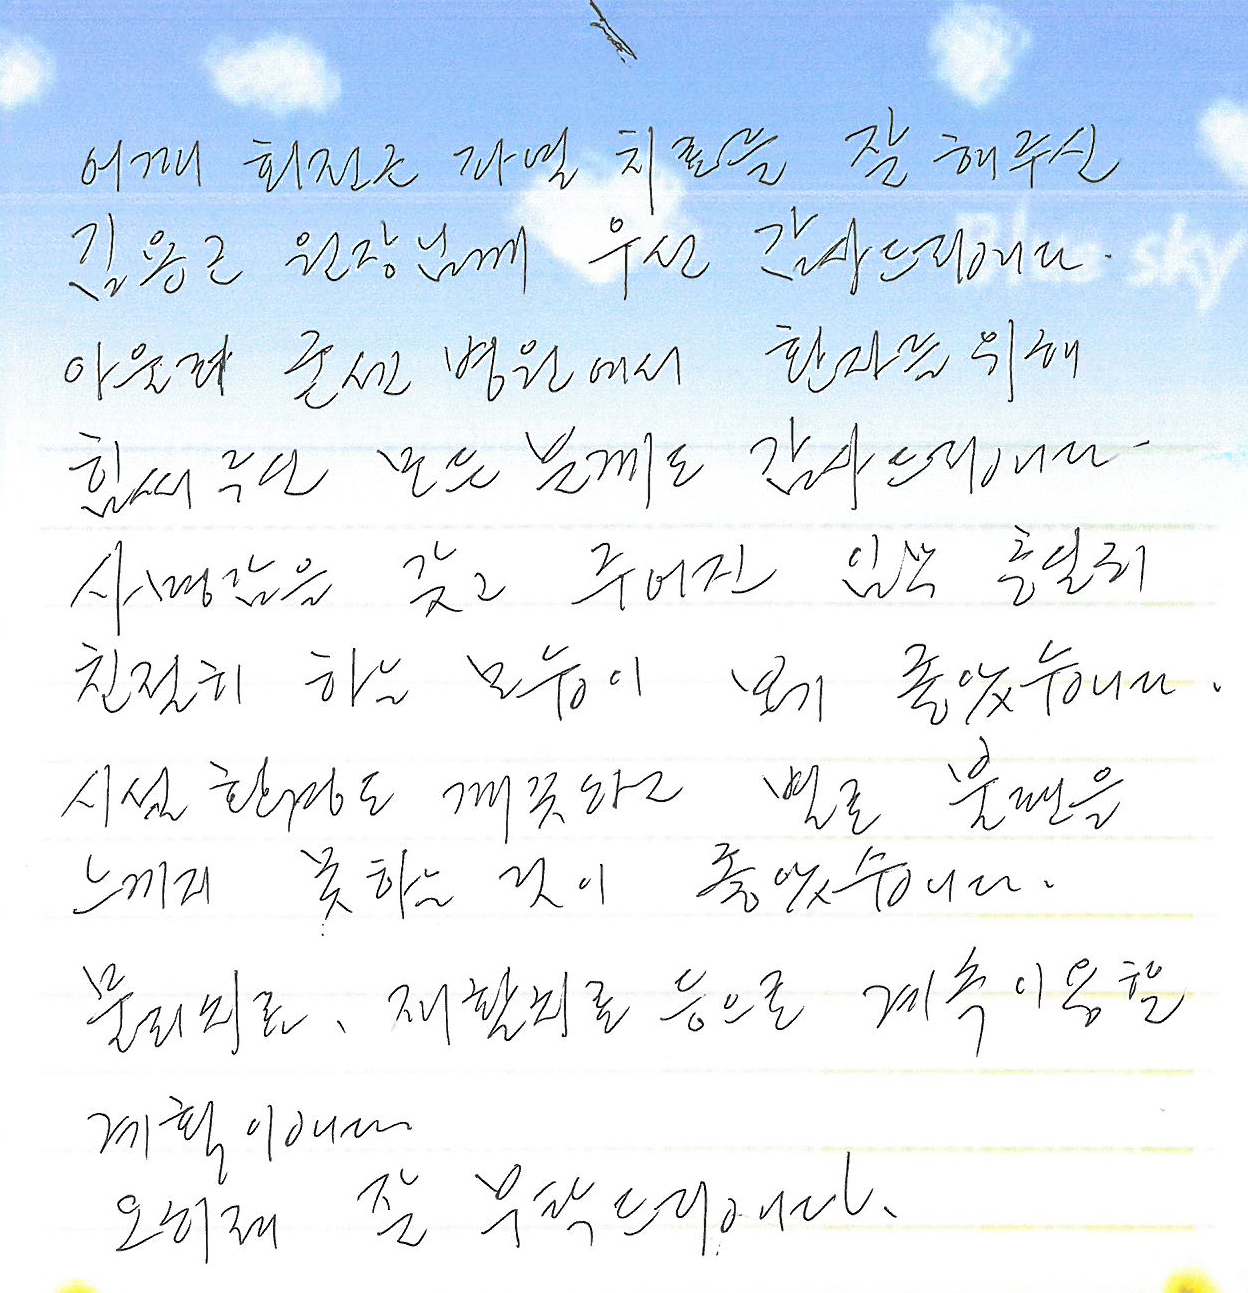 어깨 회전근 파열 치료를 잘 해주신
Blue sky
김용근 원장님께 우선 감사드립니다.
아울러 굳센병원에서 환자를 위해
힘써주신 모든 분께도 감사드립니다.
사명감을 갖고 주어진 임무 충실히
친절히 하는 모습이 보기 좋았습니다.
시설 환경도 깨끗하고 별로 불편을
느끼지 못하는 것이 좋았습니다.
물리치료, 재활치료 등으로 계속 이용할
계획입니다
잘 부탁드립니다.